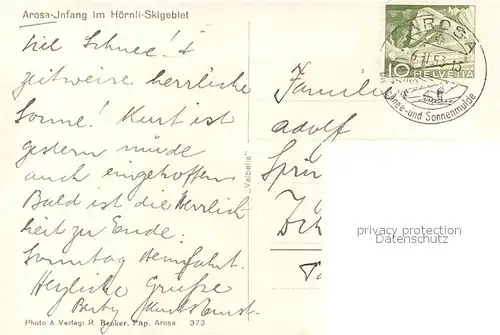 Arosa-Jnfang im Hörnli-Skigebiet
Viel Schnee! &
zeitweise herrliche
Sonne! Kurt ist
gestern müde
auch eingetroffen
Bald ist die Herrlich
keit zu Ende.
Sonntag Heimfahrt.
Herzliche Grüsse
Berty
Photo & Verlag: R. Benker, Pap. Arosa 373
"Valbella"
AROSA
10 HELVETIA
Schnee- und Sonnenmulde
Familie
Adolf
privacy protection
Datenschutz